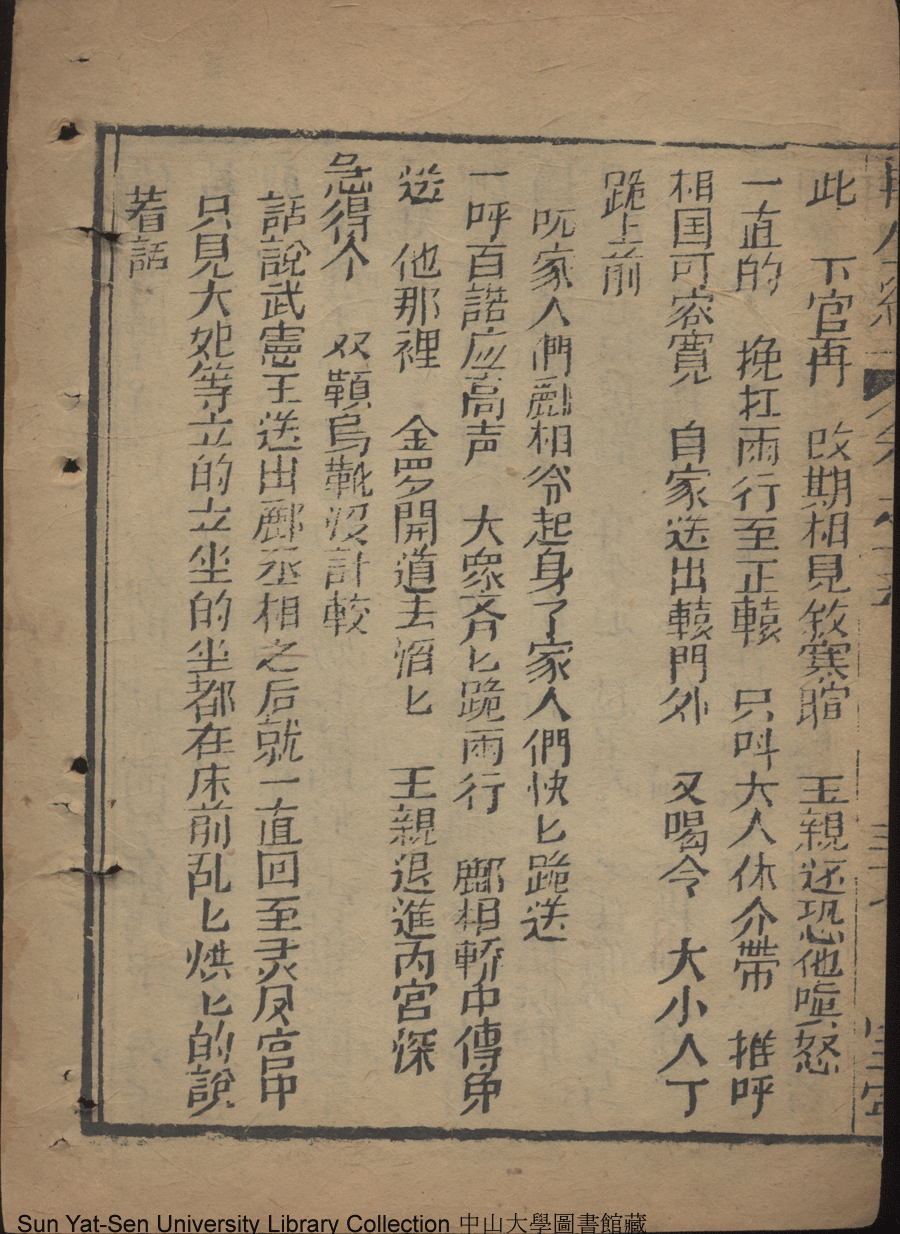 此 下官再 改期相見敘寒暄 王親还恐他嗔怒
一直的 挽扛兩行至正轅 只叫大人休介帶 推呼
相国可容寛 自家送出轅門外 又喝令 大小人丁
跪上前
吰家人們酈相令起身了家人們快匕跪送
一呼百諾应高声 大衆齐匕跪兩行 酈相轎中傳免
送 他那裡 金罗開道去滔匕 王親退進内宮深
急得个 双顆烏靴没計較
話說武憲王送出酈丞相之后就一直回至灵凤宫中
只見大妃等立的立坐的坐都在床前乱匕烘匕的說
着話
Sun Yat-Sen University Library Collection 中山大學圖書館藏